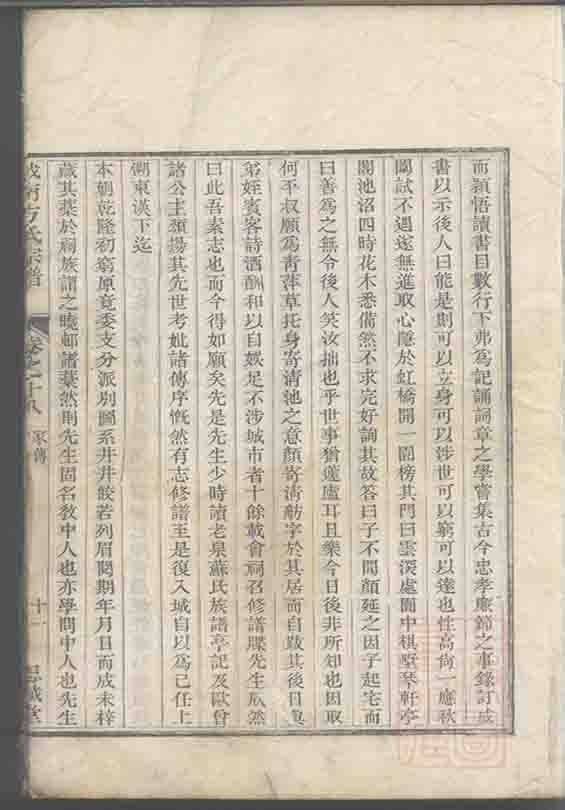 而穎悟讀書目數行下弗為記誦詞章之學嘗集古今忠孝廉節之事錄訂成
書以示後人曰能是則可以立身可以涉世可以窮可以達也性高尚一應秋
闈試不遇遂無進取心隱於虹橋開一圃榜其門曰雲深處圃中棋墅琴軒亭
閣池沼四時花木悉備然不求完好詢其故答曰子不聞顏延之因子起宅而
曰善為之無令後人笑汝拙也乎世事猶蘧廬耳且樂今日後非所知也因取
何平叔願為青萍草托身寄清池之意顏寄清舫字於其居而自跋其後日與
弟姪賓客詩酒酬和以自娛足不涉城市者十餘載會祠召修譜牒先生欣然
曰此吾素志也而今得如願矣先是先生少時讀老泉蘇氏族譜亭記及歐曾
諸公主類揚其先世考妣諸傳序慨然有志修譜至是復入城自以為己任上
溯東漢下迄
本朝乾隆初窮原竟委支分派別圖系井井皎若列眉閱期年月目而成未梓
藏其稾於祠族譜之曉邨諸葉然則先生固名教中人也亦學問中人也先生
方氏宗譜
卷之十八
家傳
十一